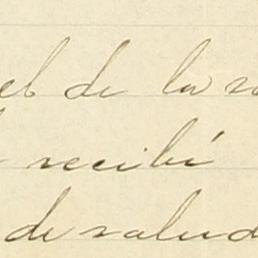 el de la
recibí
de salud